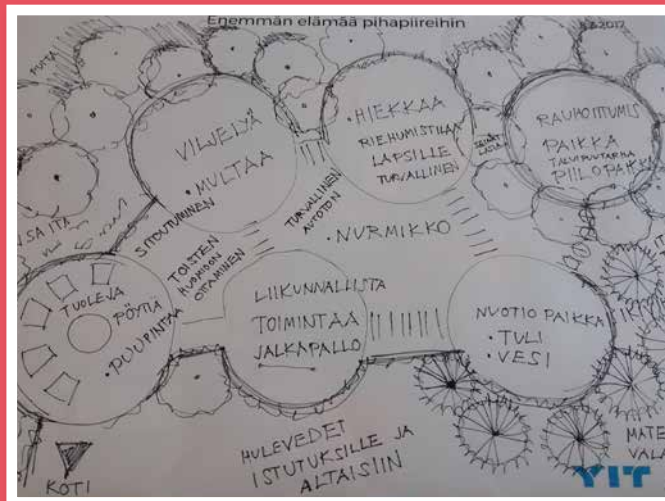 Enemmän elämää pihapiireihin
2017
PUITA
VILJELYÄ
• MULTAA
• HIEKKAA
RIEHUMISTILAA
LAPSILLE
TURVALLINEN
RAUHOITUMIS
PAIKKA
TALVIPUUTARHA
PIILOPAIKKA
SEINÄT
LASIA
SITOUTUMINEN
TOISTEN
HUOMIOON
OTTAMINEN
TURVALLINEN
AUTOTON
• NURMIKKO
TUOLEJA
PÖYTIÄ
• PUUPINTAA
LIIKUNNALLISTA
TOIMINTAA
JALKAPALLO
NUOTIO PAIKKA
• TULI
• VESI
KOTI
HULEVEDET
ISTUTUKSILLE JA
ALTAISIIN
MATE
VALA
YIT